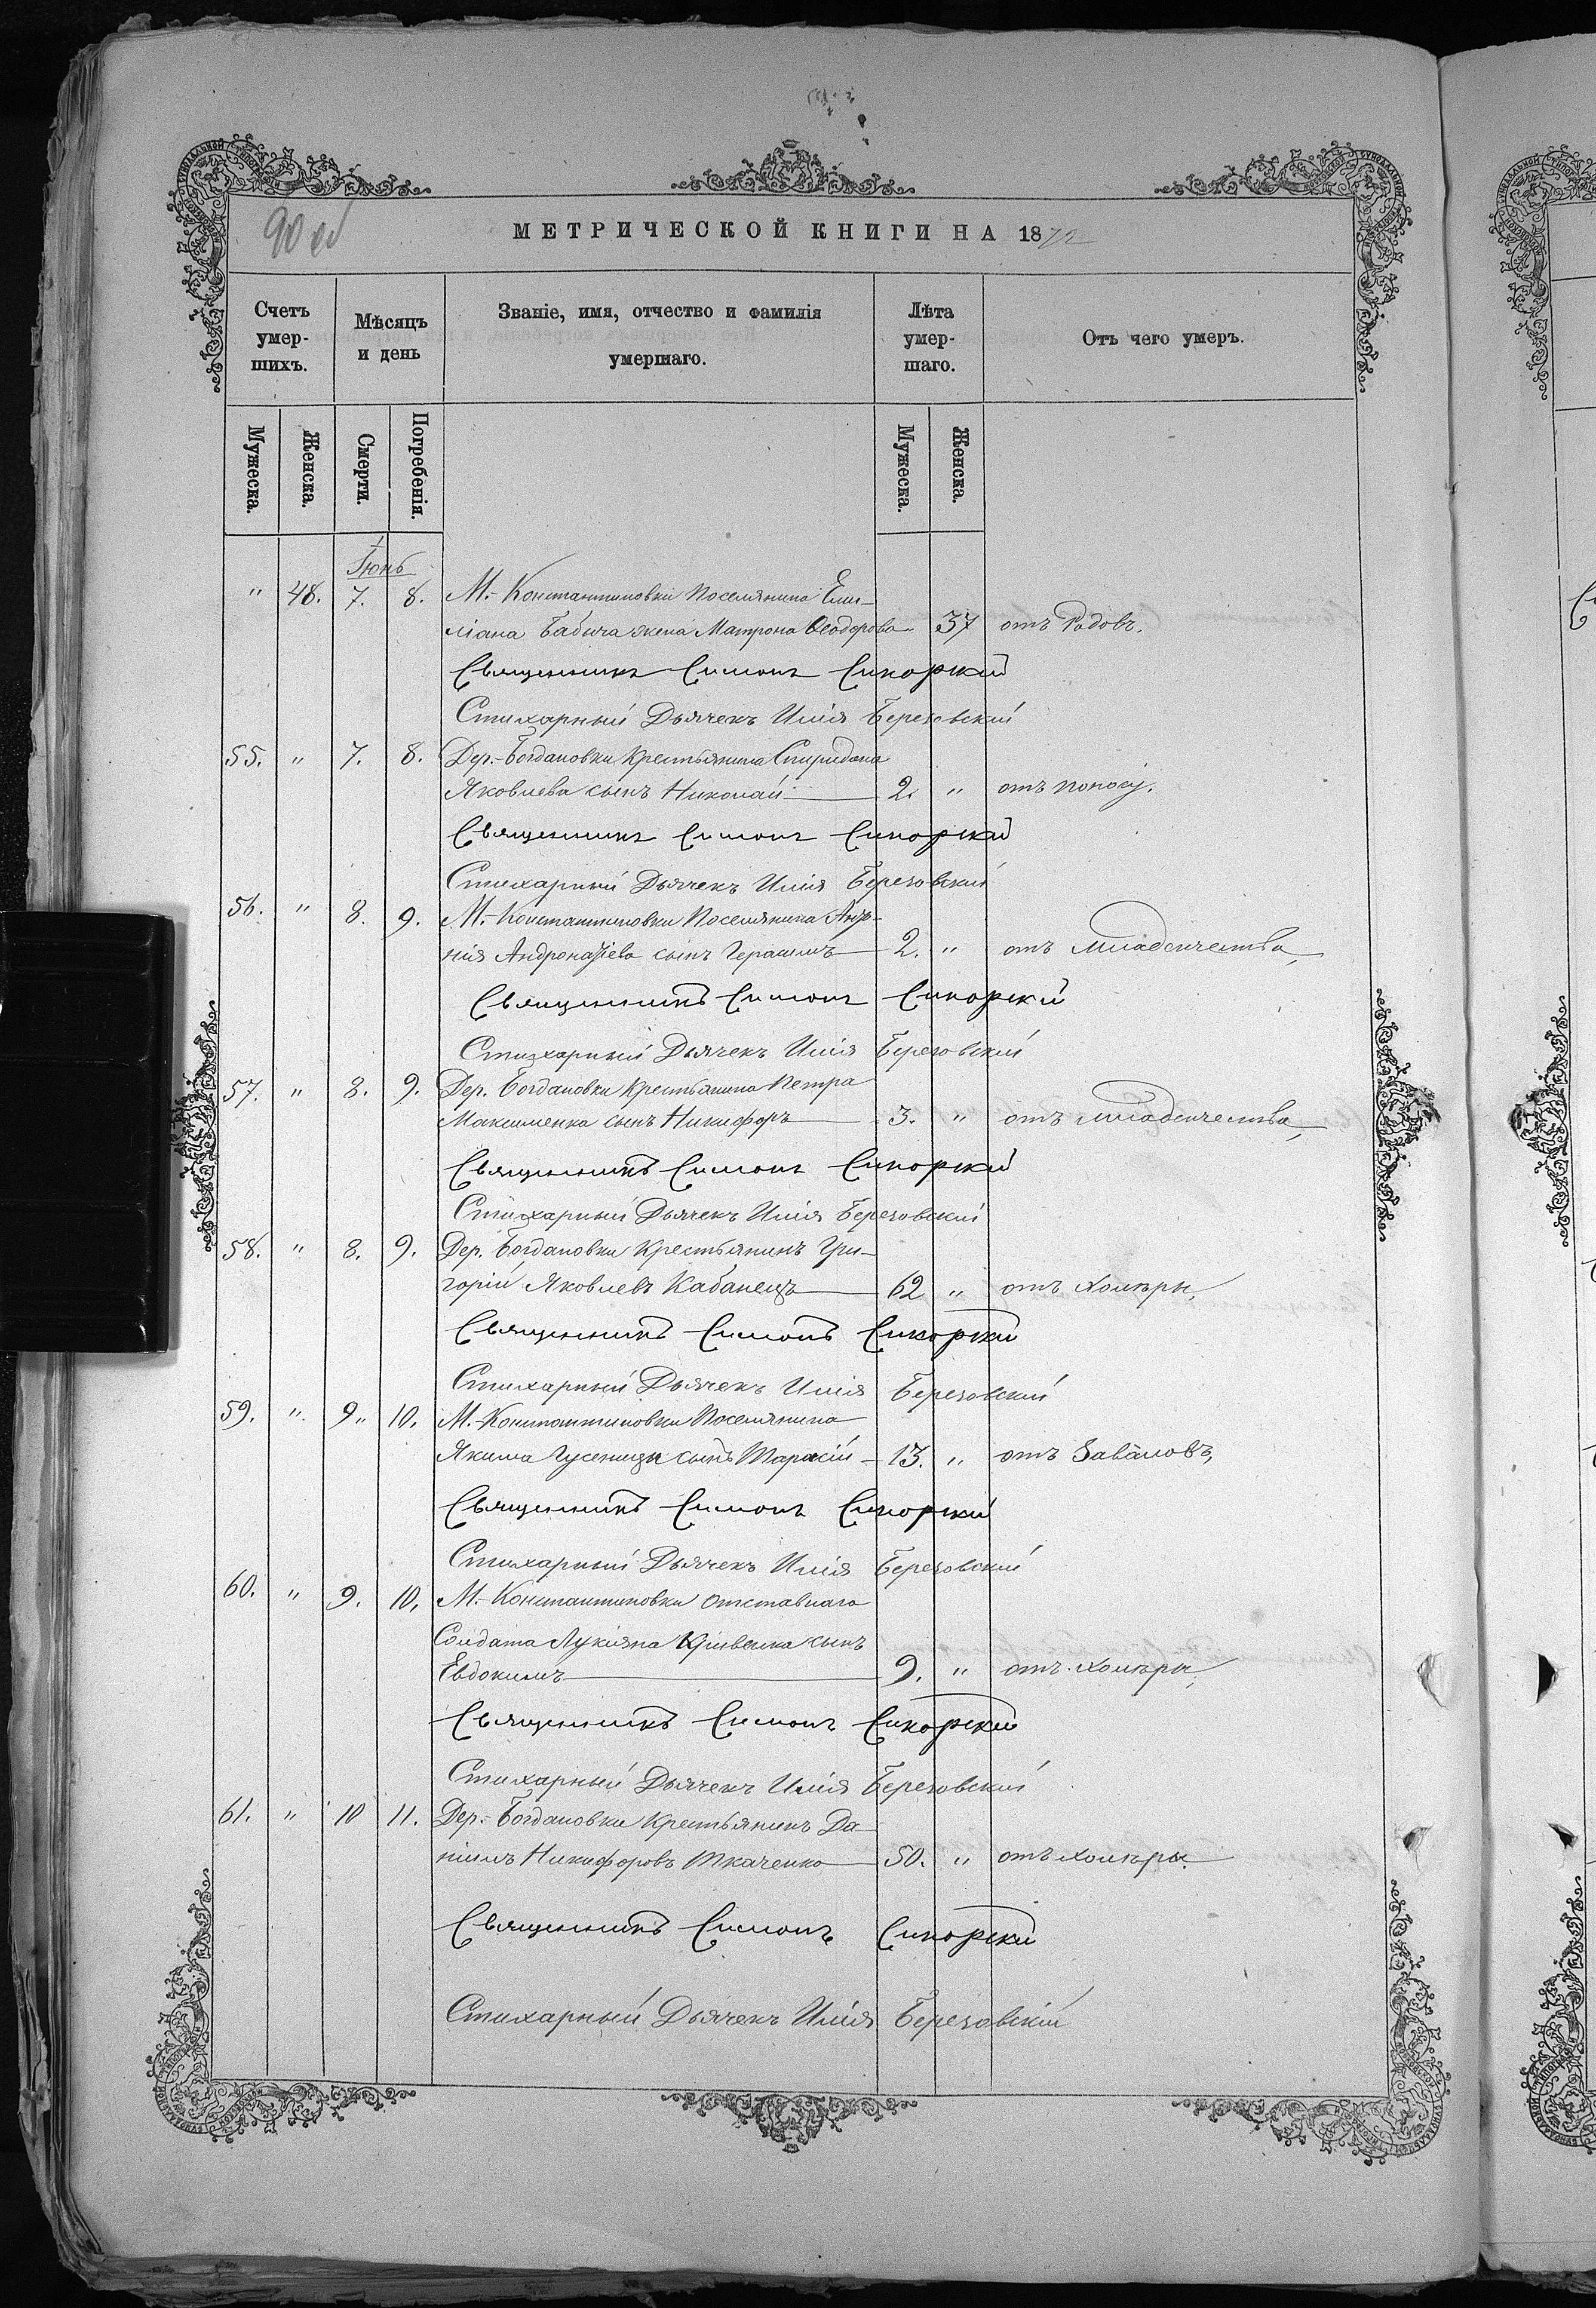 90 об
МЕТРИЧЕСКОЙ КНИГИ НА 1872
Счетъ умер- шихъ.
Мѣсяцъ и день
Званіе, имя, отчество и фамилія умершаго.
Лѣта умер- шаго.
Отъ чего умеръ.
Мужеска. Женска. Смерти. Погребенія. Мужеска. Женска.
Іюнь
" 48. 7. 8. М.- Константиновки Поселянина Еми-
ліана Бабича жена Матрона Ѳеодорова 37 отъ Родовъ.
Священникъ Симонъ Сикорскій
Стихарный Дьячекъ Илія Березовскій
55. " 7. 8. Дер.- Богдановки Крестьянина Спиридона
Яковлева сынъ Николай 2. " отъ поносу.
Священникъ Симонъ Сикорскій
Стихарный Дьячекъ Илія Березовскій
56. " 8. 9. М.- Константиновки Поселянина
нія сынъ Герасимъ 2. " отъ младенчества,
Священникъ Симонъ Сикорскій
Стихарный Дьячекъ Илія Березовскій
57. " 8. 9. Дер. Богдановки Крестьянина Петра
Максименка сынъ Никифоръ 3. " отъ младенчества,
Священникъ Симонъ Сикорскій
Стихарный Дьячекъ Илія Березовскій
58. " 8. 9. Дер. Богдановки Крестьянинъ Гри-
горій Яковлевъ Кабанецъ 62 " отъ холѣры,
Священникъ Симонъ Сикорскій
Стихарный Дьячекъ Илія Березовскій
59. " 9. 10. М.- Константиновки Поселянина
Якима Гусеницы сынъ Тарасій 13. " отъ Заваловъ,
Священникъ Симонъ Сикорскій
Стихарный Дьячекъ Илія Березовскій
60. " 9. 10, М.- Константиновки отставнаго
Солдата Лукіяна сынъ
Евдокимъ 9. " отъ холѣры,
Священникъ Симонъ Сикорскій
Стихарный Дьячекъ Илія Березовскій
61. " 10 11. Дер.- Богдановки Крестьянинъ Да-
ніилъ Никифоровъ Ткаченко 50. " отъ холѣры.
Священникъ Симонъ Сикорскій
Стихарный Дьячекъ Илія Березовскій